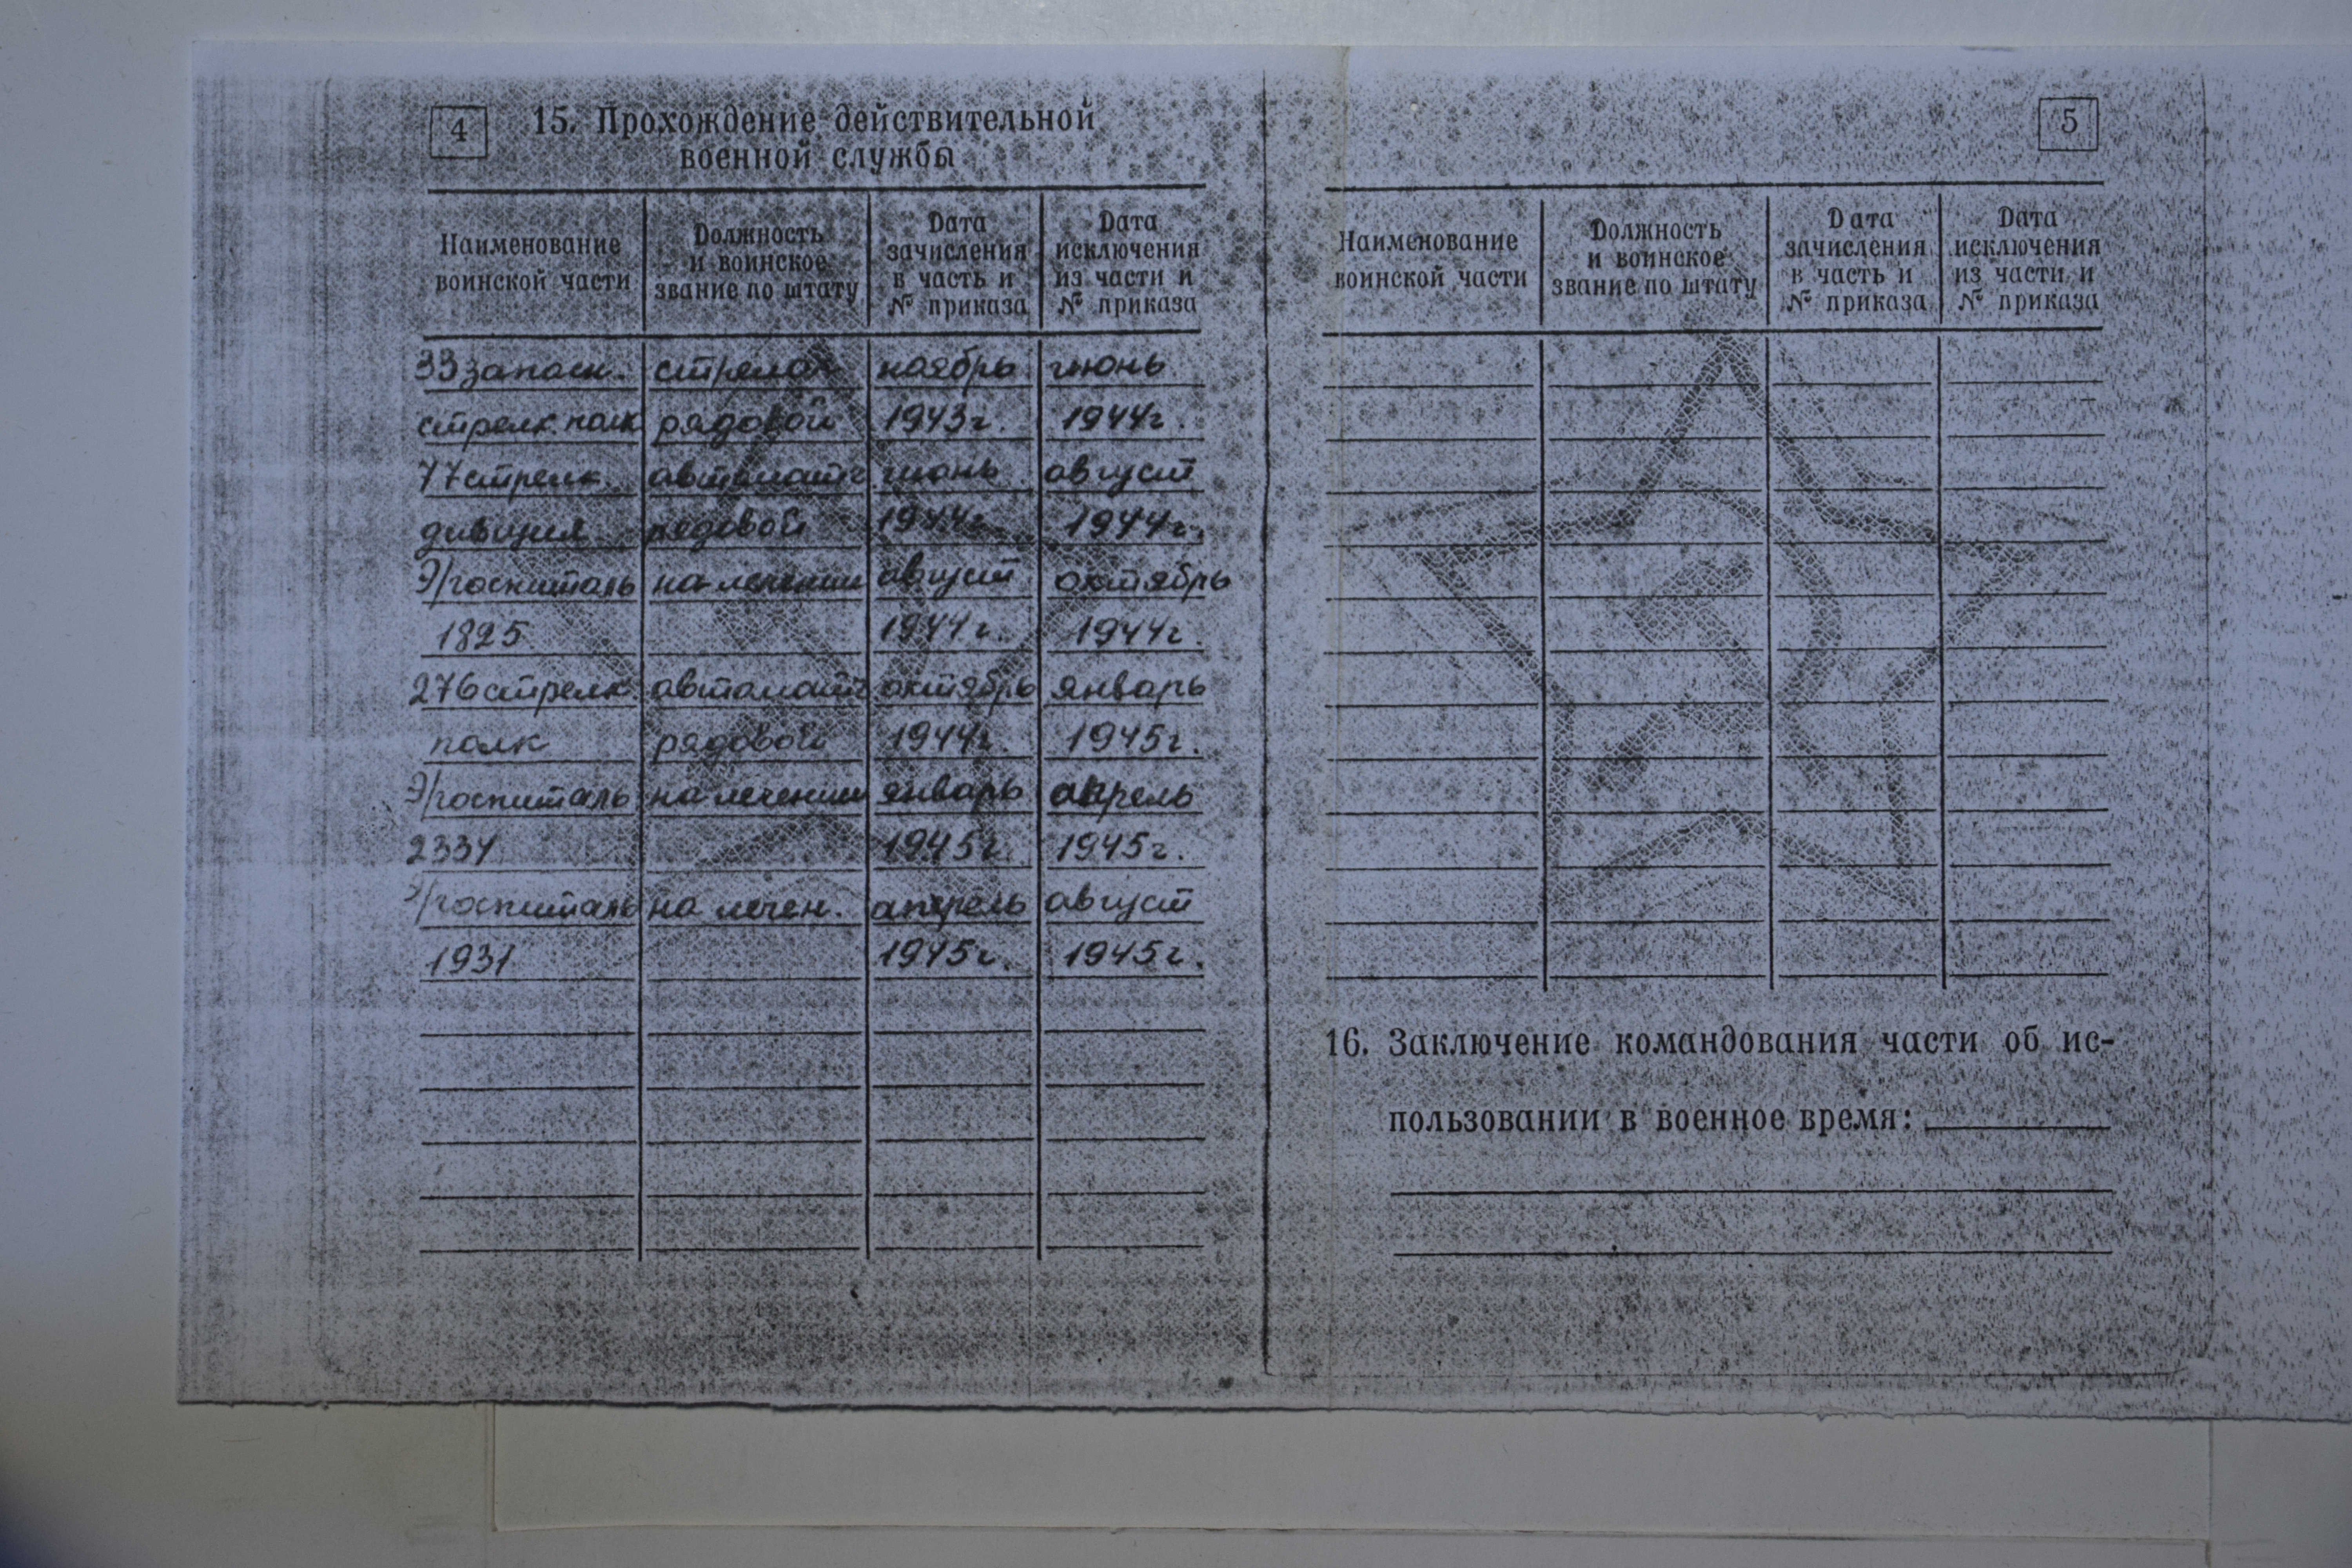 4
15. Прохождение действительной
военной службы
Наименование
воинской части
Должность
и воинское
звание по штату
Дата
зачисления
в часть и
№ приказа
Дата
исключения
из части и
№ приказа
33 запасн. стрелок ноябрь июнь
стрелк. полк рядовой 1943г. 1944г.
77 стрелк. автоматч июнь август
дивизия рядовой 1944г. 1944г.
Э/госпиталь на лечении август октябрь
1825 1944г. 1944г.
276 стрелк автоматч октябрь январь
полк рядовой 1944г. 1945г.
Э/госпиталь на лечении январь апрель
2334 1945г. 1945г.
Э/госпиталь на лечен. апрель август
1931 1945г. 1945г.
5
Наименование
воинской части
Должность
и воинское
звание по штату
Дата
зачисления
в часть и
№ приказа
Дата
исключения
из части и
№ приказа
16. Заключение командования части об ис-
пользовании в военное время: